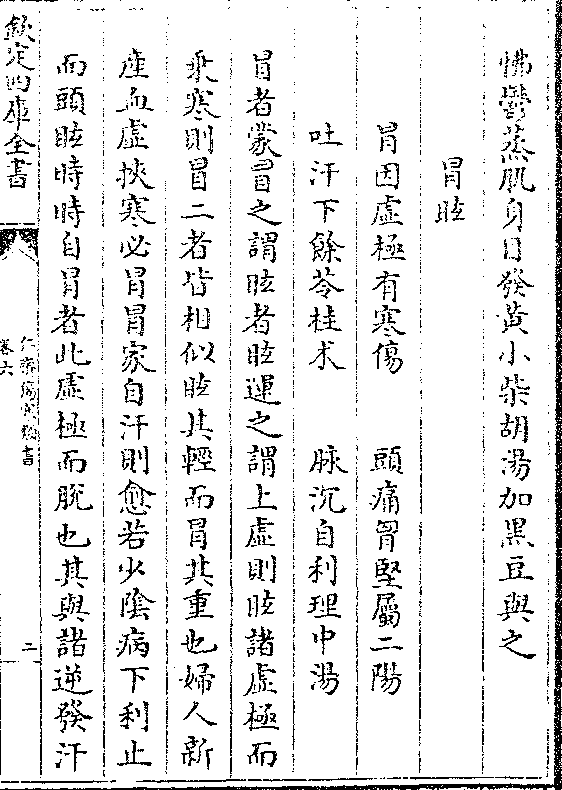 怫鬱蒸肌身目發黃小柴胡湯加黑豆與之
冒眩
冒因虛極有寒傷　頭痛胷堅屬二陽
吐汗下餘苓桂术　脉沉自利理中湯
冒者蒙冒之謂眩者眩運之謂上虛則眩諸虛極而
乘寒則冒二者皆相似眩其輕而冒其重也婦人新
產血虛挾寒必冒冒家自汗則愈若少陰病下利止
而頭眩時時自冒者此虛極而脫也其與諸逆發汗
欽定四庫全書
仁齋傷寒類書
卷六
二